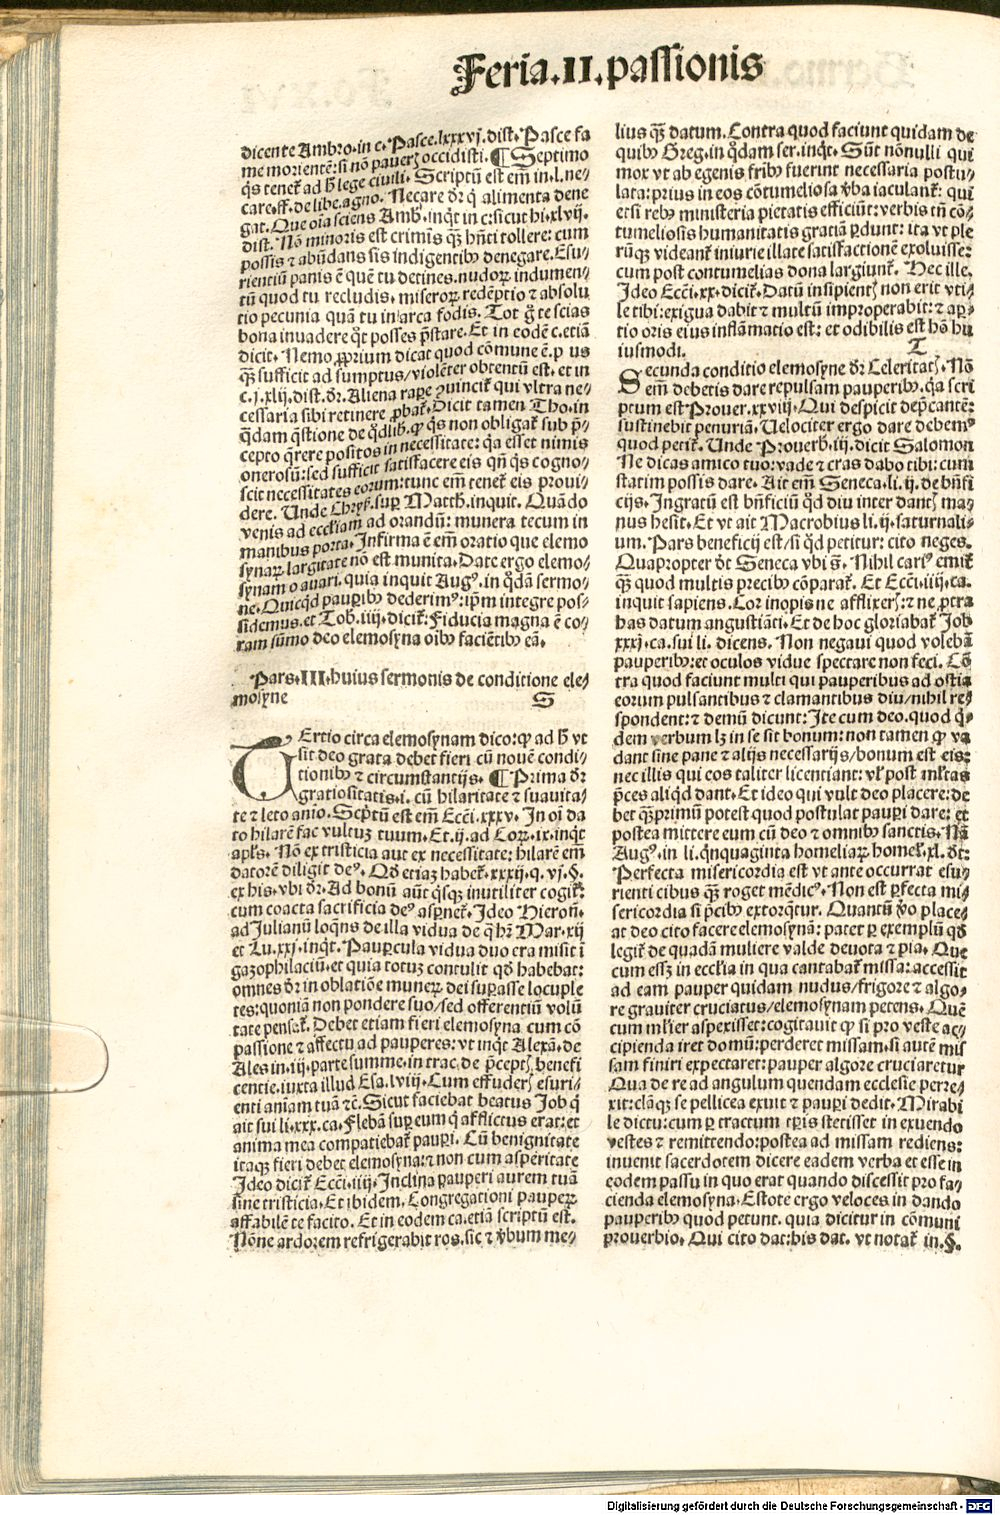 Feria.II.passionis
dicente Ambro.in c. Pasce.lxxxvj.dist. Pasce fa
me morientē:si nō paueris occidisti. ¶ Septimo
q̇s tenet̄ ad h̄ lege ciuili. Scriptū est em̄ in.l.ne⸗
care.ff.de libe.agno. Necare dr̄ q̇ alimenta dene
gat. Que oīa sciens Amb.inqt̄ in c:sicut hi.xlvij.
dist. Nō minoris est crimis qꝫ hn̄ti tollere: cum
possis ⁊ abūdans sis indigentibꝰ denegare. Esu⸗
rientiū panis ē quē tu detines.nudoꝝ indumen⸗
tū quod tu recludis. miseroꝝ redēptio ⁊ absolu
tio pecunia quā tu in arca fodis. Tot g̊ te scias
bona inuadere q̇t posses p̄stare. Et in eodē c.etiā
dicit. Nemo ꝓprium dicat quod cōmune ē.p us
qꝫ sufficit ad sumptus/violēter obtentū est. et in
c.j.xlij.dist.dr̄. Aliena rapere ꝯuincit̄ qui vltra ne⸗
cessaria sibi retinere ꝓbat̄. Dicit tamen Tho.in
q̇dam q̇stione de q̇dlib. ꝙ q̇s non obligat̄ sub p̄⸗
cepto q̇rere positos in necessitate: q̇a esset nimis
onerosū:sed sufficit satisfacere eis qn̄ q̇s cogno⸗
scit necessitates eorum:tunc em̄ tenet̄ eis proui⸗
dere. Unde Chrys̄.suꝑ Matth.inquit. Quādo
venis ad eccl̄iam ad orandū: munera tecum in
manibus porta. Infirma ē em̄ oratio que elemo
synaꝝ largitate nō est munita. Date ergo elemo⸗
synam o auari. quia inquit Augꝰ.in q̇dā sermo⸗
ne. Quicq̇d pauꝑibꝰ dederimꝰ: ip̄m integre pos⸗
sidemus.et Tob.iiij.dicit̄: Fiducia magna ē co⸗
ram sūmo deo elemosyna oībꝰ faciētibꝰ eā.
Pars.III.huius sermonis de conditione ele⸗
mosyne S
TErtio circa elemosynam dico: ꝙ ad h̄ vt
sit deo grata debet fieri cū nouē condi⸗
tionibꝰ ⁊ circumstantijs. ¶ Prima dr̄
gratiositatis.i. cū hilaritate ⁊ suauita⸗
te ⁊ leto aīo. Scptū est em̄ Ecci.xxxv. In oī da
to hilarē fac vultuꝫ tuum. Et.ij.ad Corꝝ.ix.inqt̄
apl̄s. Nō ex tristicia aut ex necessitate: hilarē em̄
datorē diligit deꝰ. Qd̄ etiaꝫ habet̄.xxxij.q.vj.§.
ex his.vbi dr̄. Ad bonū aūt q̇sqꝫ inutiliter cogit̄:
cum coacta sacrificia deꝰ asꝑnet̄. Ideo Hieroñ.
ad Julianū loqn̄s de illa vidua de q̇ hr̄ Mar.xij
et Lu.xxj.inqt̄. Pauꝑcula vidua duo era misit ī
gazophilaciū.et quia totuꝫ contulit qd̄ habebat:
omnes dr̄ in oblatiōe muneꝝ dei suꝑasse locuple
tes:quoniā non pondere suo/sed offerentiū volū
tate penset̄. Debet etiam fieri elemosyna cum cō
passione ⁊ affectu ad pauperes: vt inqt̄ Alexā.de
Ales in.iij.parte summe.in trac.de p̄ceptis benefi
centie.iuxta illud Esa.lviij. Cum effuderis esuri⸗
enti aīam tuā ⁊c̄. Sicut faciebat beatus Job q̇
ait sui li.xxx.ca. Flebā suꝑ eum q̇ afflictus erat:et
anima mea compatiebat̄ pauꝑi. Cū benignitate
itaqꝫ fieri debet elemosyna:⁊ non cum asperitate
Ideo dicit̄ Ecci.iiij. Inclina pauperi aurem tuā
sine tristicia. Et ibidem. Congregationi pauperꝝ
affabilē te facito. Et in eodem ca.etiā scriptū est.
Nōne ardorem refrigerabit ros. sic ⁊ v̄bum me⸗
lius qꝫ datum. Contra quod faciunt quidam de
quibꝰ Greg.in q̇dam ser.inqt̄. Sūt nōnulli qui
mox vt ab egenis fribꝰ fuerint necessaria postu⸗
lata: prius in eos cōtumeliosa v̄ba iaculant̄: qui
etsi rebꝰ ministeria pietatis efficiūt: verbis tn̄ cō⸗
tumeliosis humanitatis gratiā ꝑdunt: ita vt ple
rūqꝫ videant̄ iniurie illate satisfactionē exoluisse:
cum post contumelias dona largiunt̄. Hec ille.
Ideo Ecci.xx.dicit̄. Datū insipientis non erit vti⸗
le tibi: exigua dabit ⁊ multū improperabit: ⁊ aꝑ⸗
tio oris eius inflāmatio est: et odibilis est hō hu
iusmodi. T
Secunda conditio elemosyne dr̄ Celeritatis. Nō
em̄ debetis dare repulsam pauperibꝰ.q̇a scri
ptum est Prouer.xxviij. Qui despicit dep̄cantē:
sustinebit penuriā. Uelociter ergo dare debemꝰ
quod petit̄. Unde Prouerb̄.iij.dicit Salomon
Ne dicas amico tuo: vade ⁊ cras dabo tibi: cum
statim possis dare. Ait em̄ Seneca.li.ij.de bn̄fi
cijs. Ingratū est bn̄ficiū q̇d diu inter dantis ma⸗
nus hesit. Et vt ait Macrobius li.ij.saturnali⸗
um. Pars beneficij est/si q̇d petitur: cito neges.
Quapropter dt̄ Seneca vbi s̄. Nihil cariꝰ emit̄
qꝫ quod multis precibꝰ cōparat̄. Et Ecci.iiij.ca.
inquit sapiens. Cor inopis ne afflixeris: ⁊ ne ꝓtra
has datum angustiāti. Et de hoc gloriabat̄ Job
xxxj.ca.sui li. dicens. Non negaui quod volebā
pauperibꝰ: et oculos vidue spectare non feci. Cō
tra quod faciunt multi qui pauperibus ad ostia
eorum pulsantibus ⁊ clamantibus diu/nihil re⸗
spondent: ⁊ demū dicunt: Ite cum deo. quod q̇⸗
dem verbum lꝫ in se sit bonum: non tamen ꝙ va
dant sine pane ⁊ alijs necessarijs/bonum est eis:
nec illis qui eos taliter licentiant: vl̄ post ml̄tas
p̄ces aliq̇d dant. Et ideo qui vult deo placere: de
bet qꝫprimū potest quod postulat pauꝑi dare: et
postea mittere eum cū deo ⁊ omnibꝰ sanctis. Nā
Augꝰ. in li. q̇nquaginta homeliaꝝ homel̄.xl. dt̄:
Perfecta misericordia est vt ante occurrat esu⸗
rienti cibus qꝫ roget mēdicꝰ. Non est ꝑfecta mi⸗
sericordia si p̄cibꝰ extorq̇tur. Quantū v̄o place⸗
at deo cito facere elemosynā: patet ꝑ exemplū qd̄
legit̄ de quadā muliere valde deuota ⁊ pia. Que
cum esset in eccl̄ia in qua cantabat̄ missa: accessit
ad eam pauper quidam nudus/frigore ⁊ algo⸗
re grauiter cruciatus/elemosynam petens. Quē
cum ml̄ier aspexisset: cogitauit ꝙ si pro veste ac⸗
cipienda iret domū: perderet missam. si autē mis
sam finiri expectaret: pauper algore cruciaretur
Qua de re ad angulum quendam ecclesie perre⸗
xit: clāqꝫ se pellicea exuit ⁊ pauꝑi dedit. Mirabi
le dictu: cum ꝑ tractum tꝑis stetisset in exuendo
vestes ⁊ remittendo: postea ad missam rediens:
inuenit sacerdotem dicere eadem verba et esse in
eodem passu in quo erat quando discessit pro fa⸗
cienda elemosyna. Estote ergo veloces in dando
pauperibꝰ quod petunt. quia dicitur in cōmuni
prouerbio. Qui cito dat: bis dat. vt notat̄ in.§.
Digitalisierung gefördert durch die Deutsche Forschungsgemeinschaft - DFG